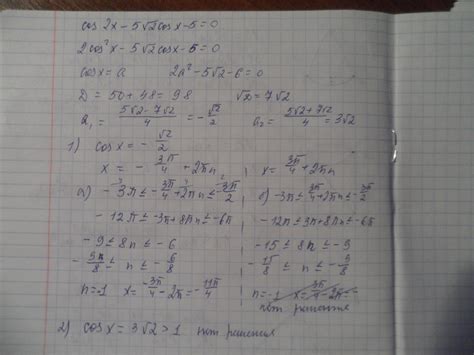 cos 2x - 5√2 cos x - 5 = 0
2cos²x - 5√2 cos x - 6 = 0
cos x = a     2a² - 5√2 - 6 = 0
D = 50 + 48 = 98     √D = 7√2
a₁ = (5√2 - 7√2)/4 = -√2/2     a₂ = (5√2 + 7√2)/4 = 3√2
1) cos x = -√2/2
x = -3π/4 + 2πn     x = 3π/4 + 2πn
а) -3π ≤ -3π/4 + 2πn ≤ -3π/2     б) -3π ≤ 3π/4 + 2πn ≤ -3π/2
-12π ≤ -3π + 8πn ≤ -6π     -12π ≤ 3π + 8πn ≤ -6π
-9 ≤ 8n ≤ -6     -15 ≤ 8n ≤ -9
≤ n ≤ -6/8     -15/8 ≤ n ≤ -9/8
n = -1   x = -3π/4 - 2π = -11π/4     n = -1   x = 3π/4 - 2π =
нет решения
2) cos x = 3√2 > 1   нет решения